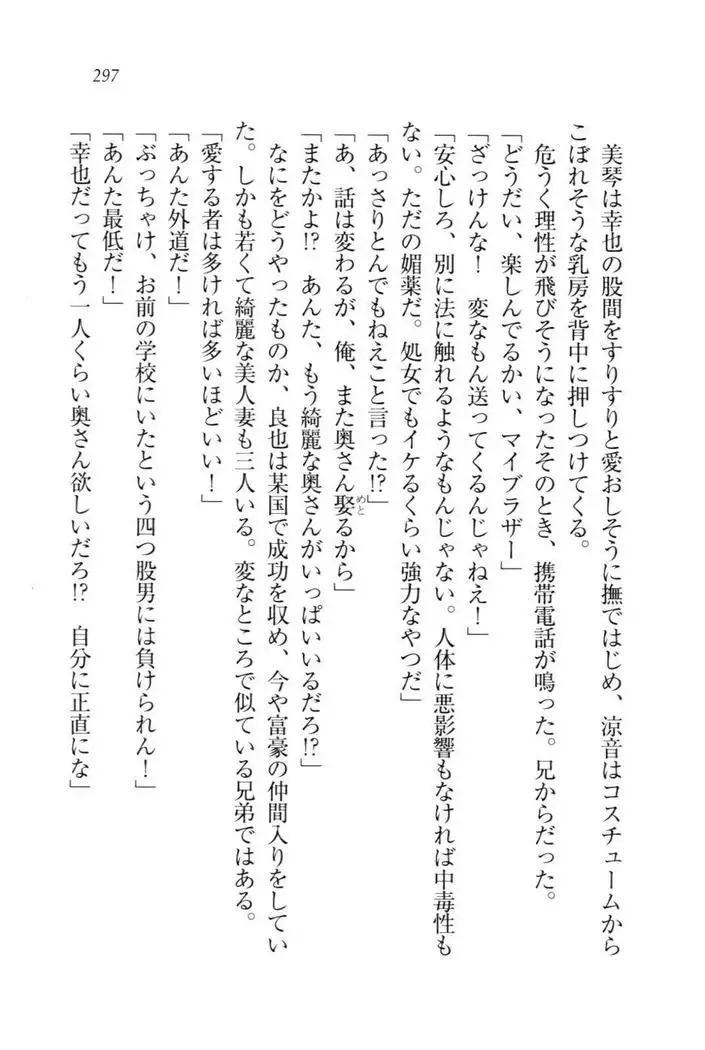 297
美琴は幸也の股間をすりすりと愛おしそうに撫ではじめ、涼音はコスチュームから
こぼれそうな乳房を背中に押しつけてくる。
危うく理性が飛びそうになったそのとき、携帯電話が鳴った。兄からだった。
「どうだい、楽しんでるかい、マイブラザー」
「ざっけんな！　変なもん送ってくるんじゃねえ！」
「安心しろ、別に法に触れるようなもんじゃない。人体に悪影響もなければ中毒性も
ない。ただの媚薬だ。処女でもイケるくらい強力なやつだ」
「あっさりとんでもねえこと言った!?」
「あ、話は変わるが、俺、また奥さん娶めとるから」
「またかよ!?　あんた、もう綺麗な奥さんがいっぱいいるだろ!?」
なにをどうやったものか、良也は某国で成功を収め、今や富豪の仲間入りをしてい
た。しかも若くて綺麗な美人妻も三人いる。変なところで似ている兄弟ではある。
「愛する者は多ければ多いほどいい！」
「あんた外道だ！」
「ぶっちゃけ、お前の学校にいたという四つ股男には負けられん！」
「あんた最低だ！」
「幸也だってもう一人くらい奥さん欲しいだろ!?　自分に正直にな」